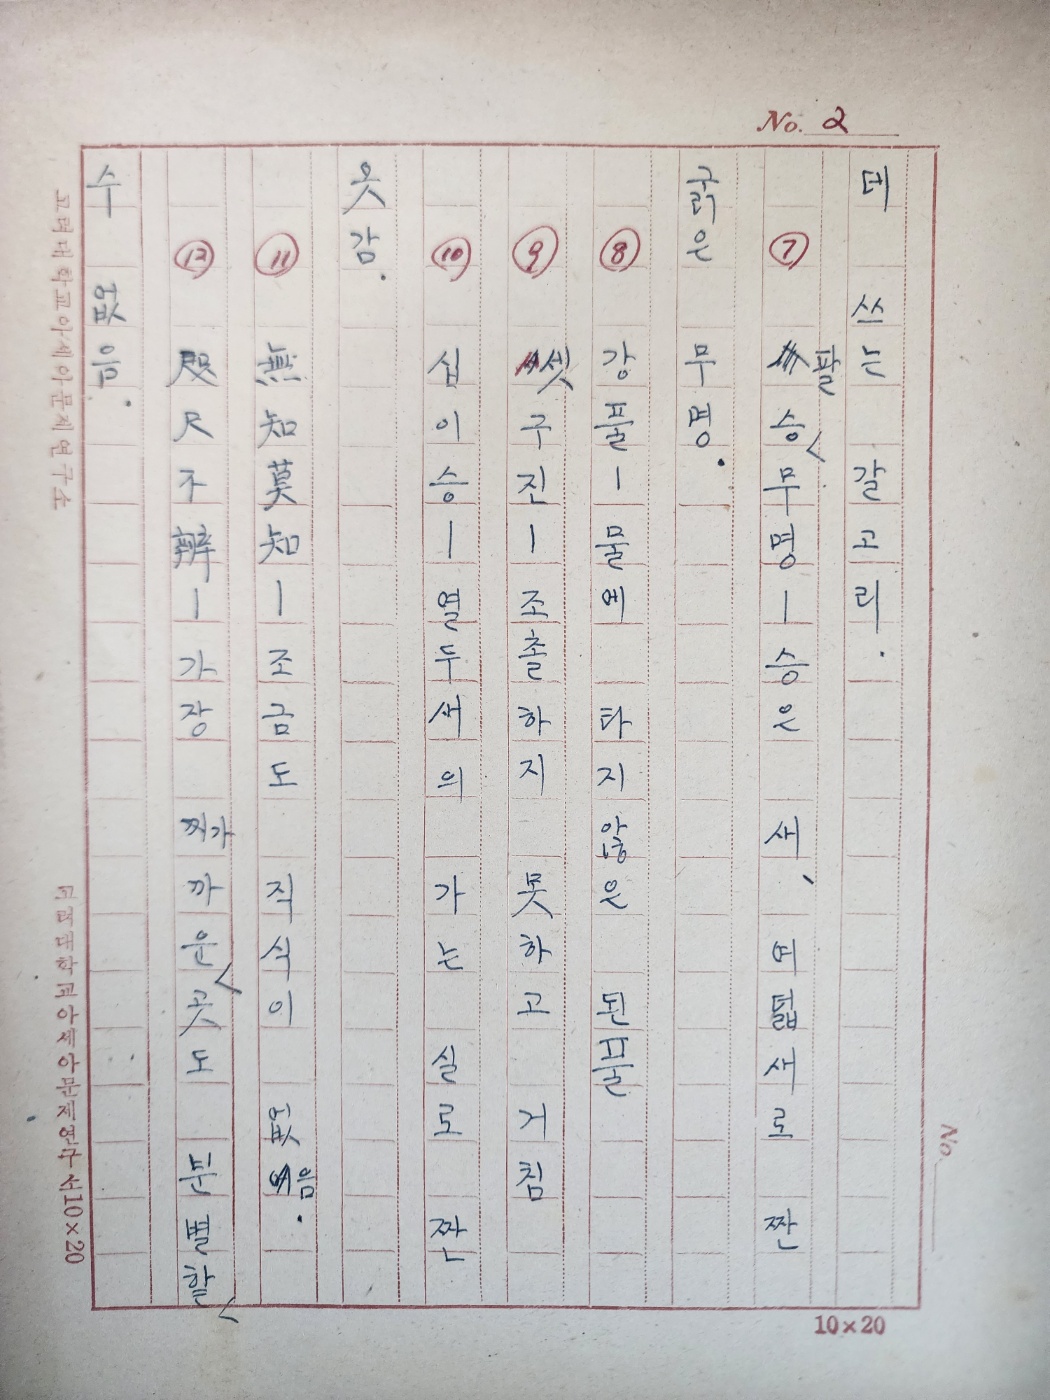 No. 2
데 쓰는 갈고리.
⑦ 팔승무명ㅡ승은 새、 여덟새로 짠
굵은 무명.
⑧ 강풀ㅡ물에 타지 않은 된풀
⑨ 쎗구진ㅡ조촐하지 못하고 거침
⑩ 십이승ㅡ열두새의 가는 실로 짠
옷감.
⑪ 無知莫知ㅡ조금도 직식이 없음.
⑫ 咫尺不辨ㅡ가장 가까운 곳도 분별할
수 없음.
고려대학교아세아문제연구소
고려대학교아세아문제연구소10×20
No.
10×20